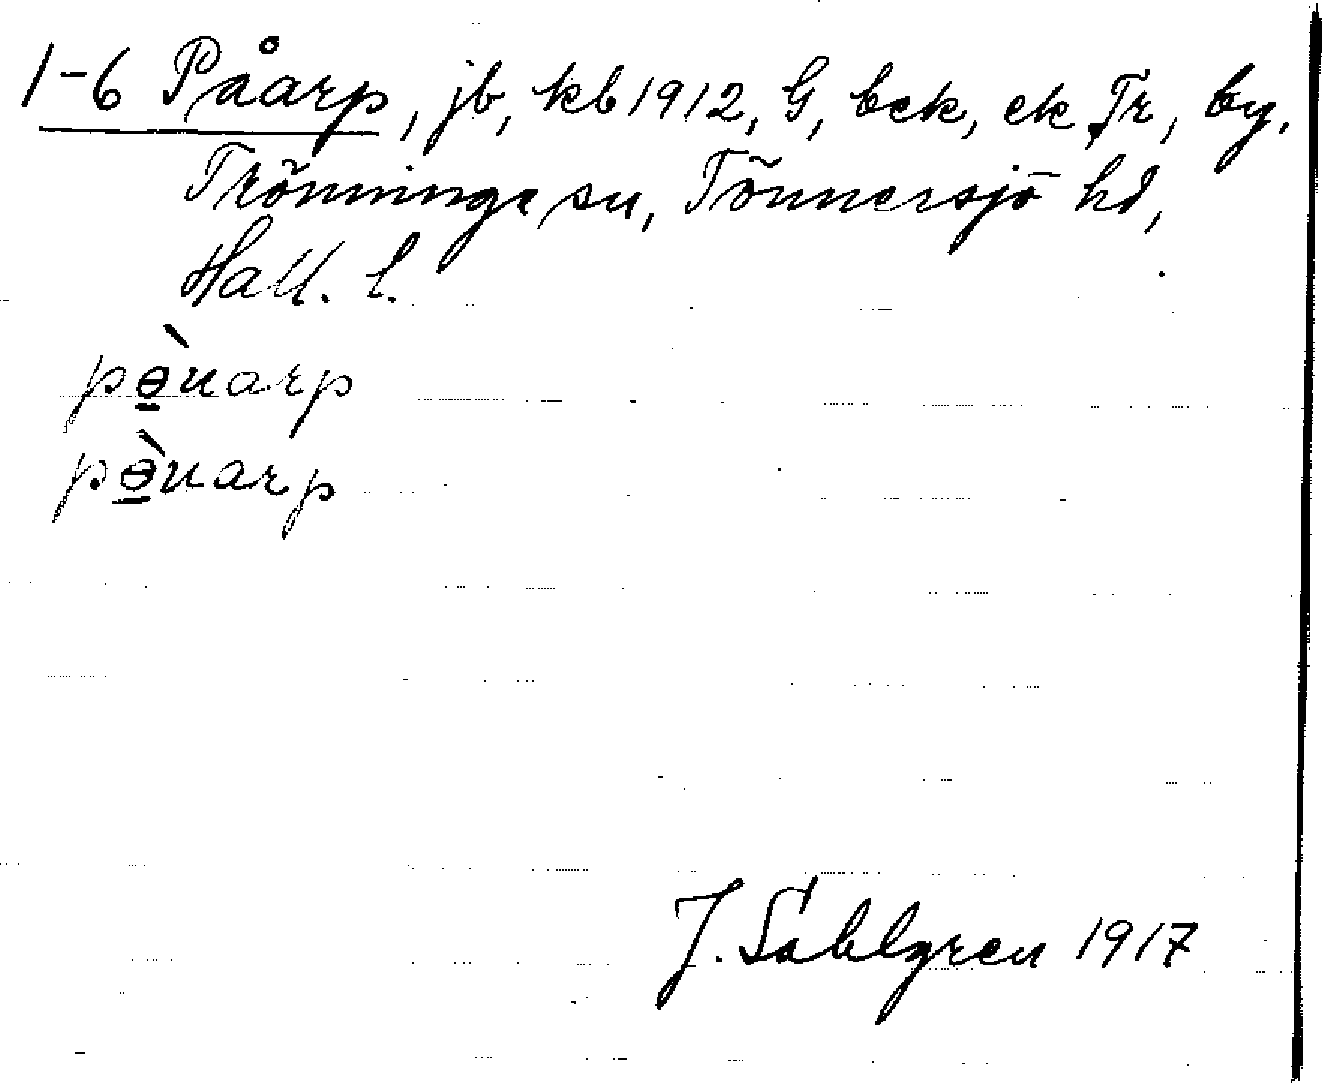 1-6 Påarp, jb, kb 1912, G, bek, ek Tr, by.
Trönninge sn, Tönnersjö hd,
Hall. l.
pɵ̠̀uarp
pɵ̠̀uarp
J. Sahlgren 1917